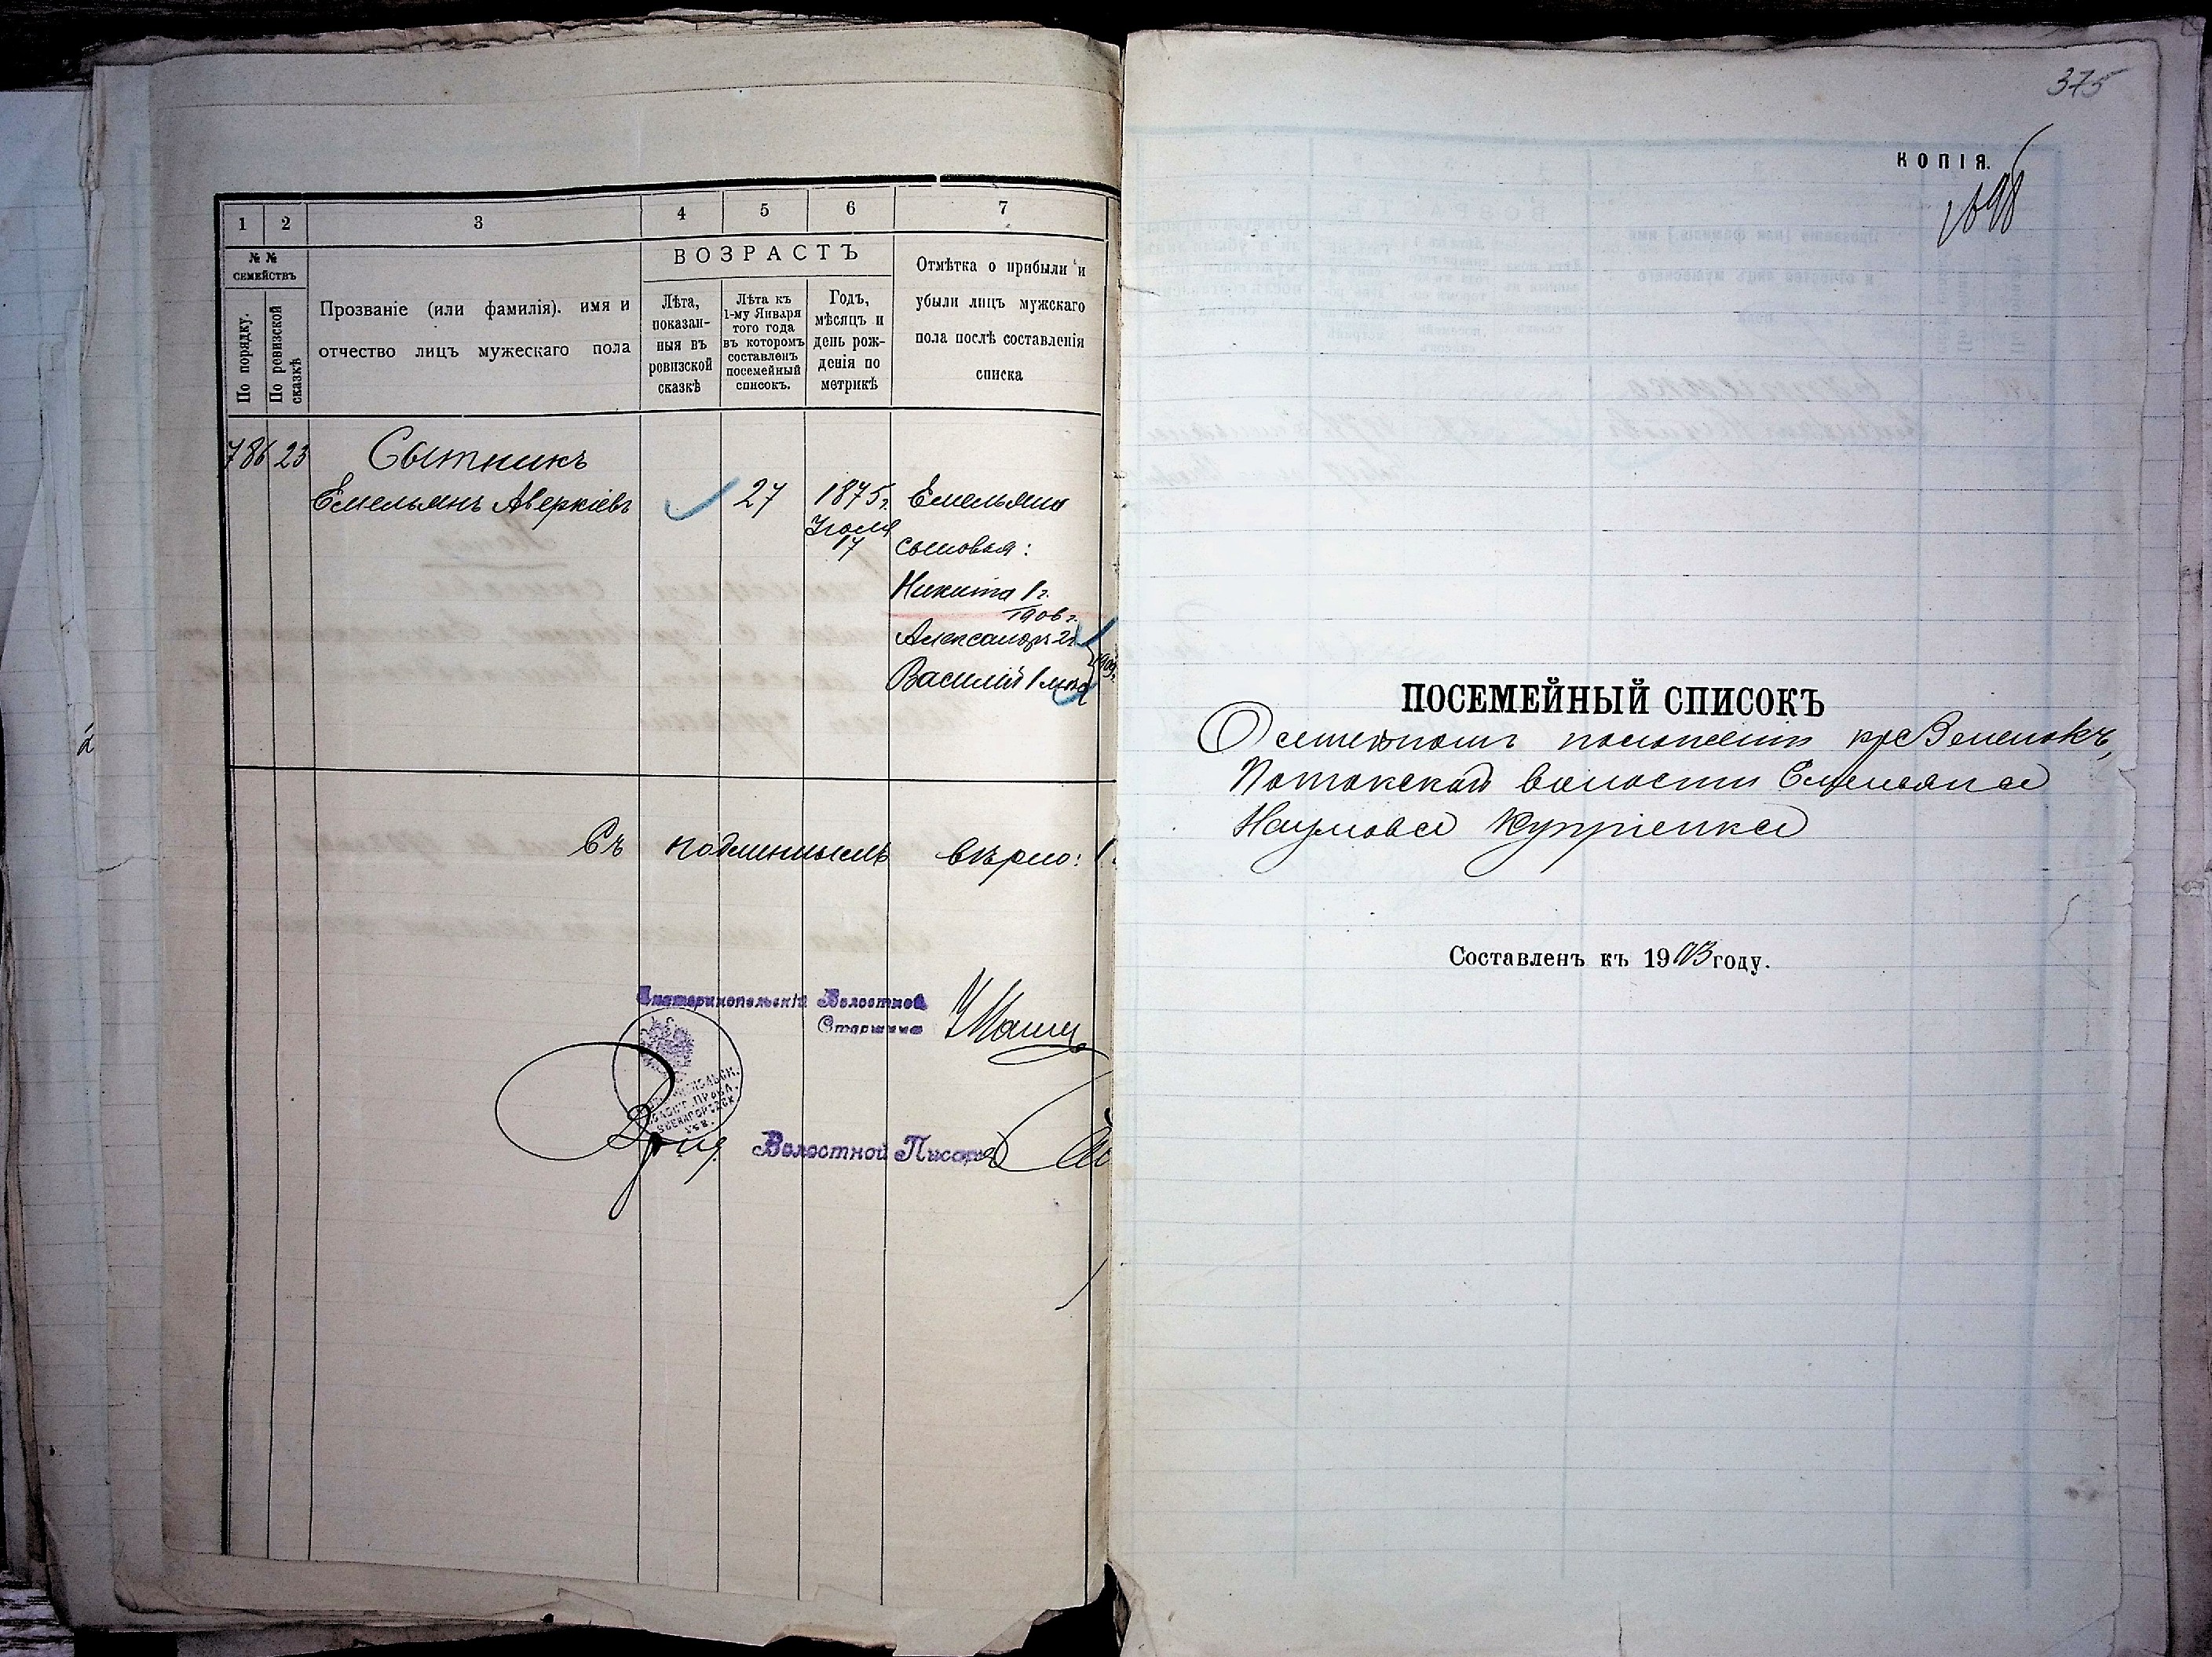 1 2 3 4 5 6 7
№ № семействъ
По порядку.
По ревизской сказкѣ
Прозваніе (или фамилія). имя и
отчество лицъ мужескаго пола
ВОЗРАСТЪ
Лѣта,
показан-
ныя въ
ревизской
сказкѣ
Лѣта къ
1-му Января
того года
въ которомъ
составленъ
посемейный
списокъ.
Годъ,
мѣсяцъ и
день рож-
денія по
метрикѣ
Отмѣтка о прибыли и
убыли лицъ мужскаго
пола послѣ составленія
списка
786 23 Сытникъ
Емельянъ Аверкіевъ 27 1875 г. Емельяна
17
сыновья:
Никита 1 г.
1906 г.
Александръ 2 г.
Василій 1
Съ подлиннымъ вѣрно:
Екатеринопольскій Волостной
Старшина
Волостной Писарь
375
КОПІЯ.
ПОСЕМЕЙНЫЙ СПИСОКЪ
О семейномъ положеніи кр. с Зеленокъ,
Потокской волости Емельяна
Наумова Купріенка
Составленъ къ 1903 году.